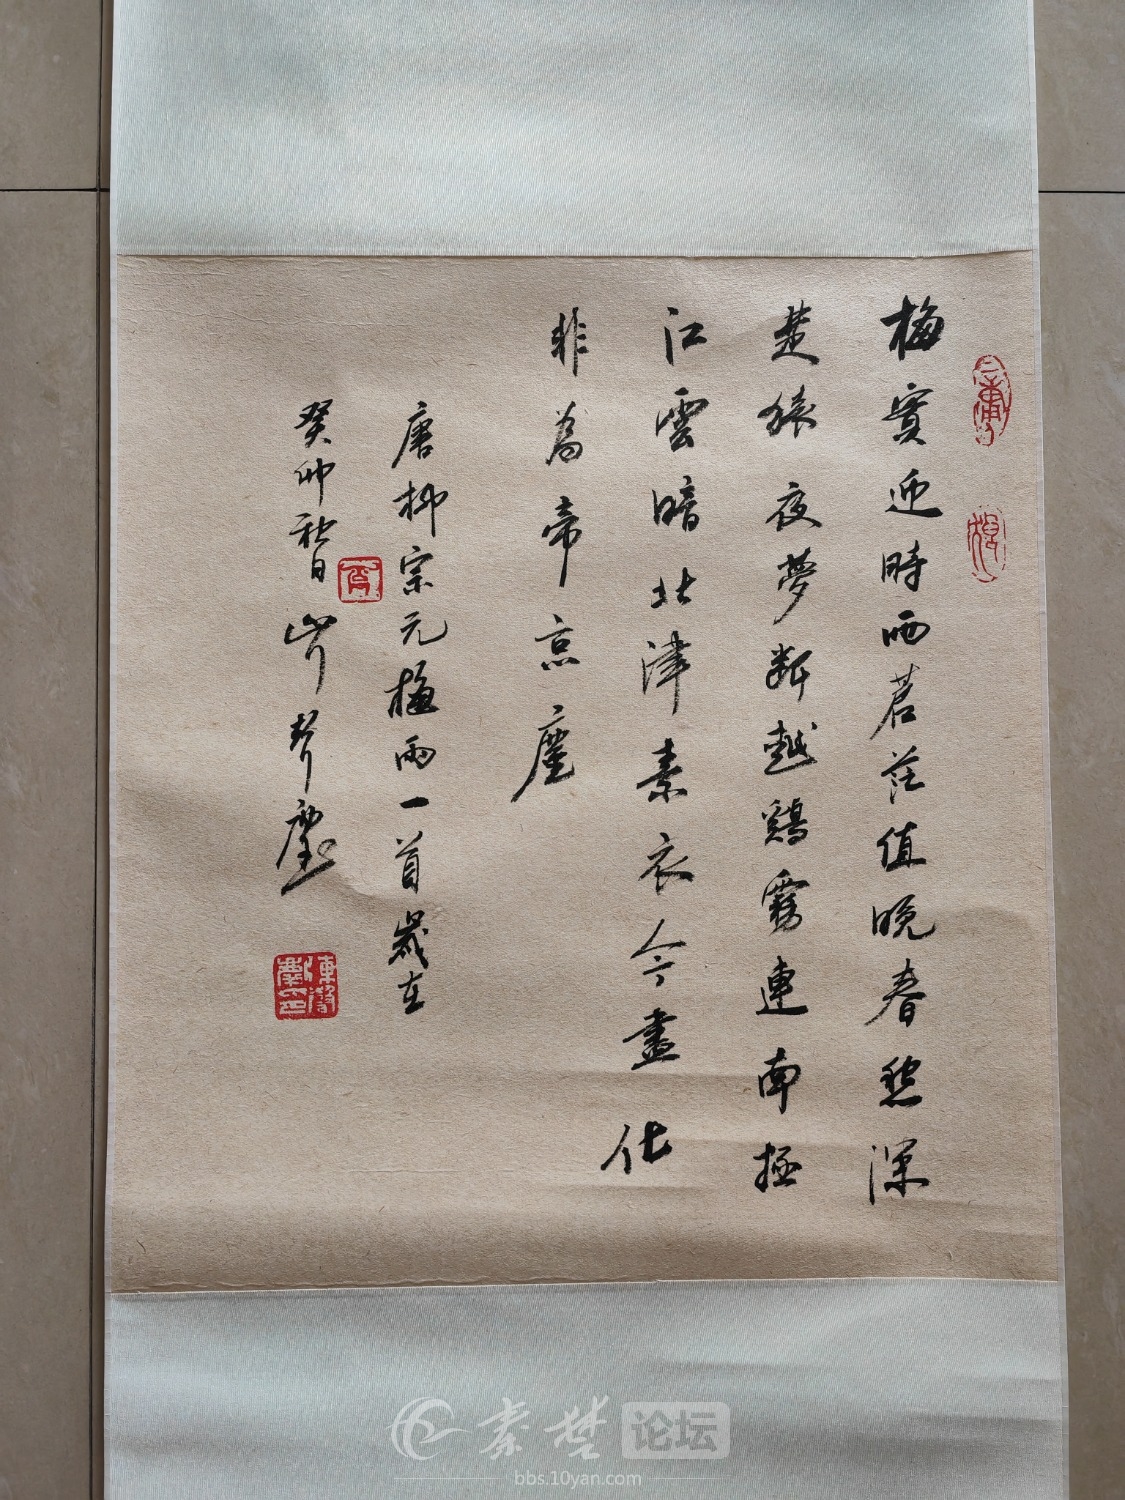 梅實迎時雨蒼茫值晚春愁深
楚猿夜夢斷越鷄霧連南極
江雲暗北津素衣今盡化
非為帝京塵
唐柳宗元梅雨一首歲在
癸卯秋日
秦楚论坛
bbs.10yan.com